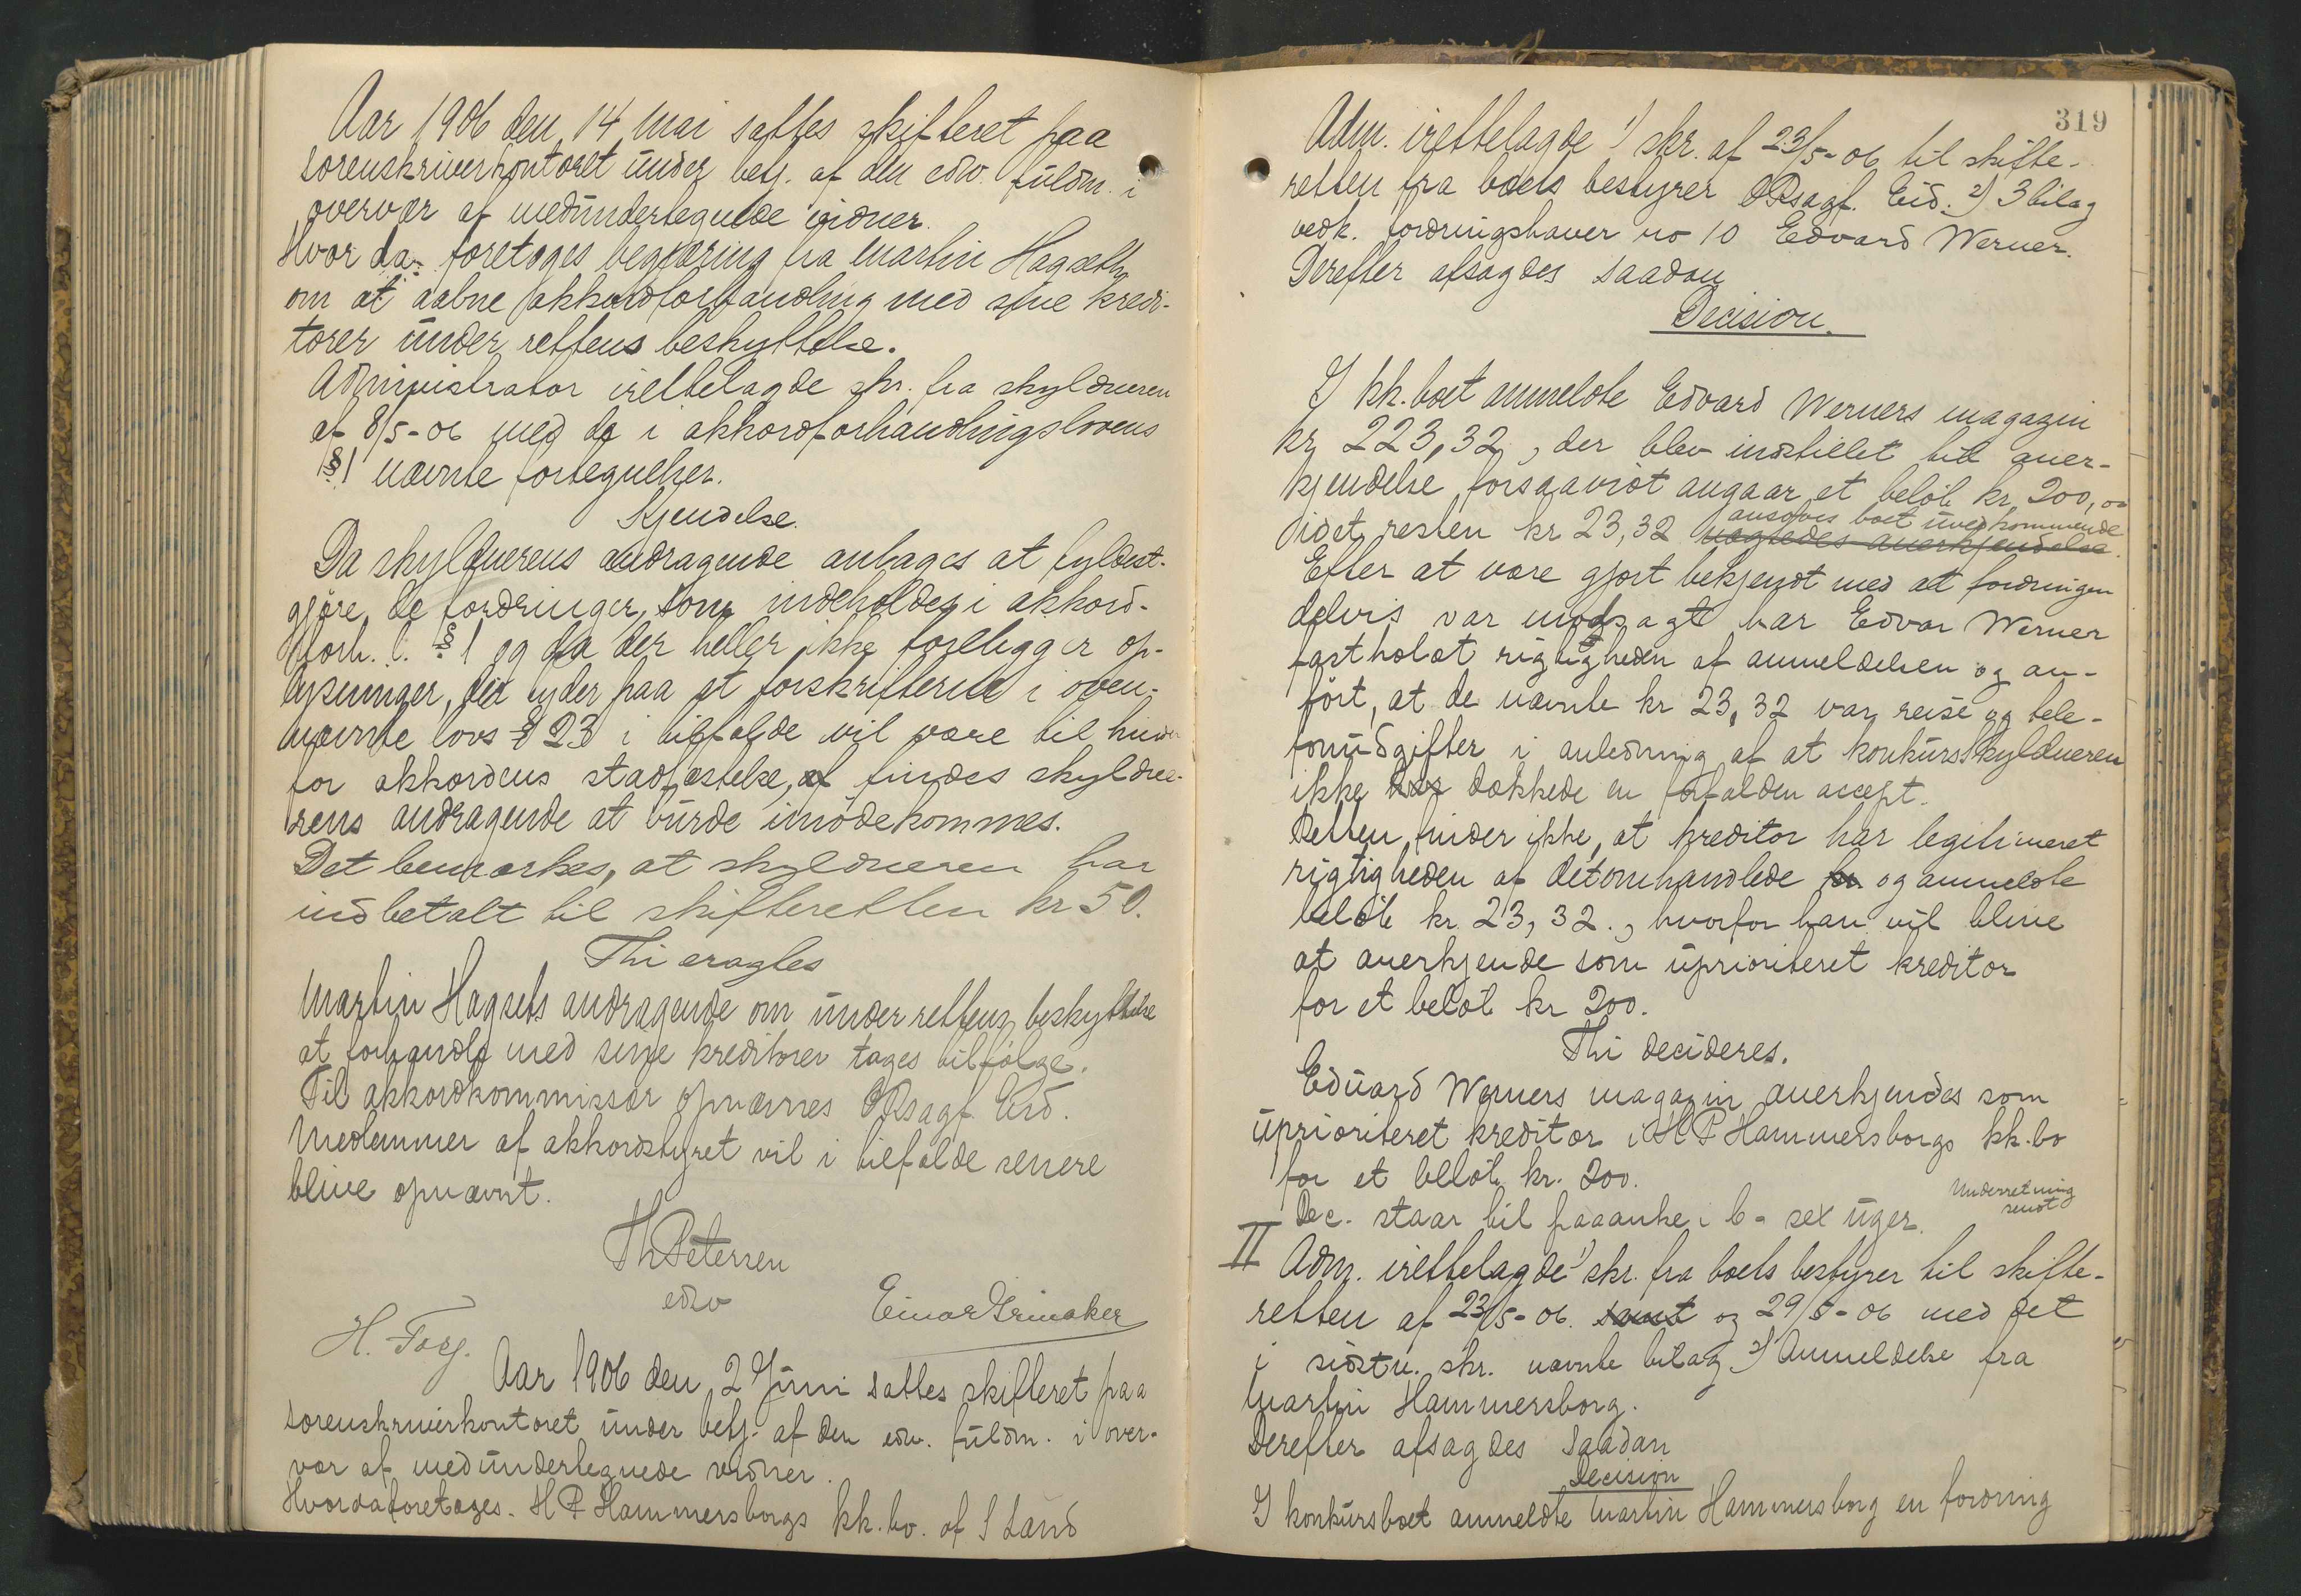 Aar 1906 den 14 Mai sattes skifteret paa
sorenskriverkontoret under betj. af den edsv. fuldm. i
overvær af medundertegnede vidner.
Hvor da: foretoges begjæring fra Martin Hagseth
om at aabne akkordforhandling med sine kredi-
torer under rettens beskyttelse.
Administrator irettelagde skr. fra skyldneren
af 8/5-06 med de i akkordforhandlingslovens
§1 nævnte fortegnelser.
Kjendelse.
Da skyldnerens andragende antages at fyldest-
gjøre de fordringer, som indeholdes i akkord-
forh. l. § 1 og da der heller ikke foreligger op-
lysninger, der tyder paa at forskrifterne i oven-
nævnte lovs § 23 i tilfælde vil være til hinder
for akkordens stadfæstelse, findes skyldne-
rens andragende at burde imødekommes.
Det bemærkes, at skyldneren har
indbetalt til skifteretten kr 50.
Thi eragtes
Martin Hagseths andragende om under rettens beskyttelse
at forhandle med sine kreditorer tages tilfølge.
Til akkordkommissær opnævnes ORsagf. Eid.
Medlemmer af akkordstyret vil i tilfælde senere
blive opnævnt.
Th Petersen
edsv
Einar Grinaker
H. Forg.
Aar 1906 den 2 Juni sattes skifteret paa
sorenskriverkontoret under betj. af den edsv. fuldm. i over-
vær af medundertegnede vidner.
Hvor da foretoges. H P Hammersborgs kk. bo. af S Land
319
Adm. irettelagde 1) skr. af 23/5-06 til skifte-
retten fra boets bestyrer ORsagf. Eid. 2) 3 bilag
vedk. fordringshaver no 10 Edvard Werner.
Derefter afsagdes saadan
Decision.
I kk. boet anmeldte Edvard Werners magazin
kr 223,32, der blev indstillet til aner-
kjendelse forsaavidt angaar et beløb kr 200,00
ansøges boet uvedkommende
idet resten kr 23,32 nægtedes anerkjendelse.
Efter at være gjort bekjendt med at fordringen
delvis var modsagt har Edvar Werner
fastholdt rigtigheden af anmeldelsen og an-
ført, at de nævnte kr 23,32 var reise og tele-
fonudgifter i anledning af at konkursskyldneren
ikke har dækkede en forfalden accept.
Retten finder ikke, at kreditor har legitimeret
rigtigheden af det omhandlede kr og anmeldte
beløb kr 23,32., hvorfor han vil blive
at anerkjende som uprioriteret kreditor
for et beløb kr 200.
Thi decideres.
Eduard Werners magazin anerkjendes som
uprioriteret kreditor i H P Hammersborgs kk. bo
for et beløb kr. 200.
Underretning
sendt
Dec. staar til paaanke i 6 - sex uger.
II Adm. irettelagde 1) skr. fra boets bestyrer til skifte-
retten af 23/5-06. samt og 29/5-06 med det
i sidstn. skr. nævnte bilag 2) Anmeldelse fra
Martin Hammersborg.
Derefter afsagdes saadan
Decision
I konkursboet anmeldte Martin Hammersborg en fordring